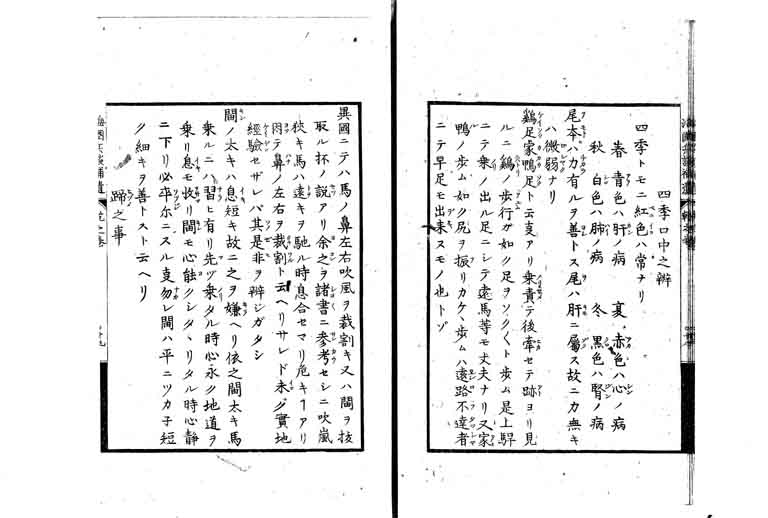 四季口中之辨
四季トモニ紅色ハ常ナリ
春 青色ハ肝ノ病 夏 赤色ハ心ノ病
秋 白色ハ肺ノ病 冬 黒色ハ腎ノ病
尾本ハカ有ルヲ善トス尾ハ肝ニ屬ス故ニ力無キ
ハ微弱ナリ
鷄足家鴨足ト云亥アリ乗責テ後牽セテ跡ヨリ見
ルニ鷄ノ歩行ガ如ク足ヲソクヽト歩ム是上馯
ニテ乗ノ出ル足ニシテ遠馬等モ丈夫ナリ又家
鴨ノ歩ム如ク尻ヲ振リカケヽ歩ムハ遠路不達者
ニテ早足モ出来スモノ也トゾ
異國ニテハ馬ノ鼻左右吹風ヲ裁割キ又ハ間ヲ抜
取ル抔ノ説アリ余之ヲ諸書ニ参考セシニ吹嵐
狹キ馬ハ遠キヲ馳ル時息合セマリ危キヿアリ
因テ鼻ノ左右ヲ裁割ト云ヘリサレド未ダ實地
經驗セザレバ其是非ヲ辨ジガタシ
間ノ太キハ息短キ故ニ之ヲ嫌ヘリ依之間太キ馬
乗ルニハ習ヒ有リ先ヅ乗タル時心永ク地道ヲ
乗リ息モ收リ間モ心能クシタヽリタル時心静
ニ下リ必卒尓ニスル亥勿レ間ハ平ニツカ子短
ク細キヲ善トスト云ヘリ
蹄之事